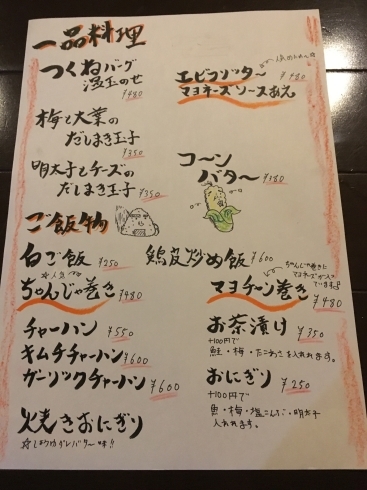 一品料理
つくねバーグ
温玉のせ
¥480
エビフリッター
¥480
マヨネーズソースあえ
梅と大葉の
だしまき玉子
¥350
明太子とチーズの
だしまき玉子
¥350
コーン
バター
¥380
ご飯物
白ご飯 ¥250
鶏皮炒め飯 ¥600
☆人気☆
ちゃんじゃ巻き ¥480
ちゃんじゃ巻きに
マヨネーズが入って
います
マヨチーン巻き
¥480
チャーハン ¥550
キムチチャーハン ¥600
ガーリックチャーハン ¥600
お茶漬け ¥350
+100円で
鮭・梅・たこわさを入れれます。
おにぎり ¥250
+100円で
魚・梅・塩こんぶ・明太子
入れれます。
焼きおにぎり
☆しょうゆダレバター味!!